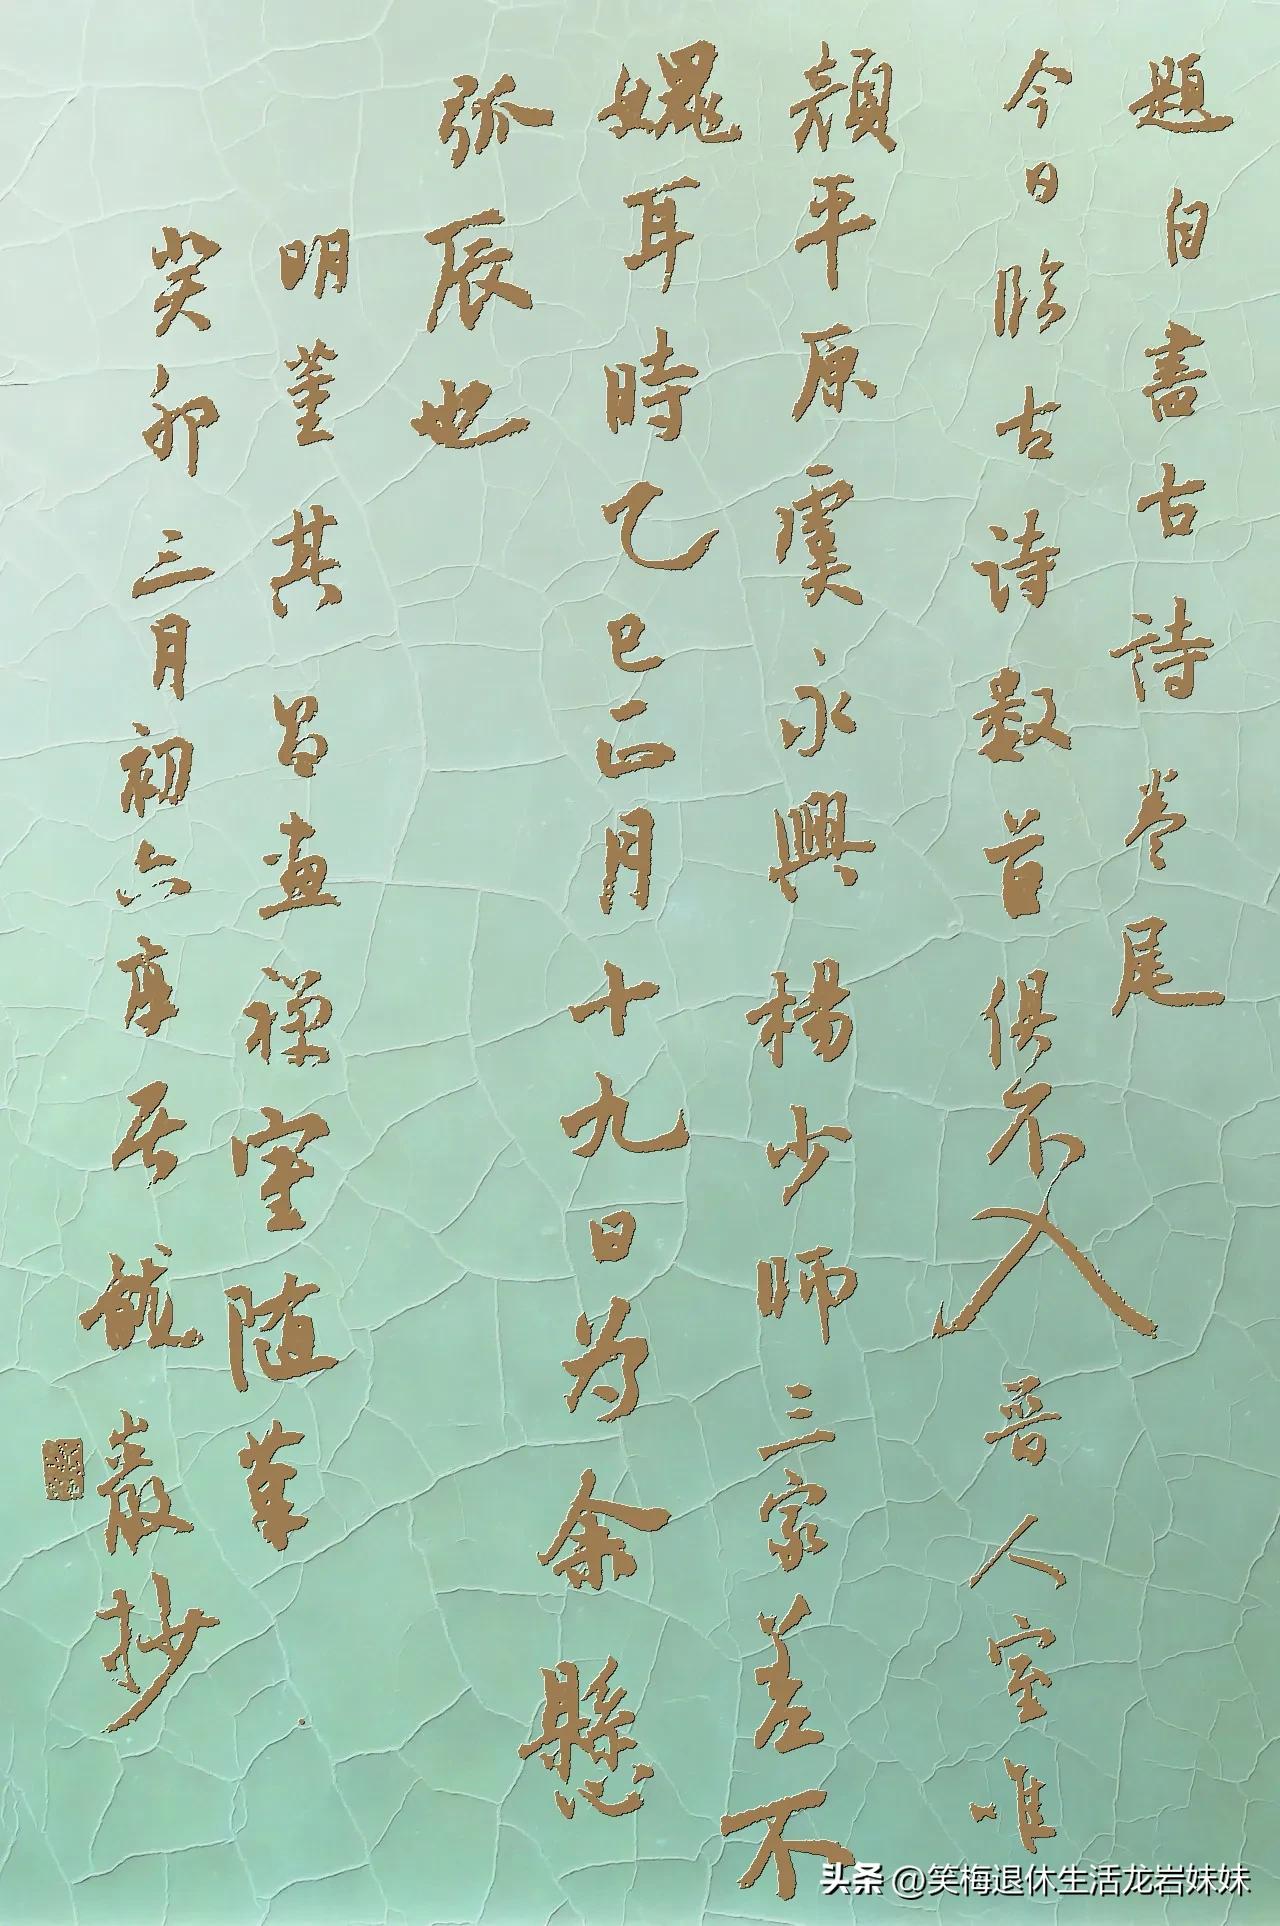 题自书古詩卷尾
今日临古诗数首俱不入晋人室唯
颜平原虞永興楊少师三家差不
媿耳時乙巳正月十九日为余懸
弧辰也
明董其昌画禅室随笔
癸卯三月初六 居龍巖抄
头条 @笑梅退休生活龙岩妹妹